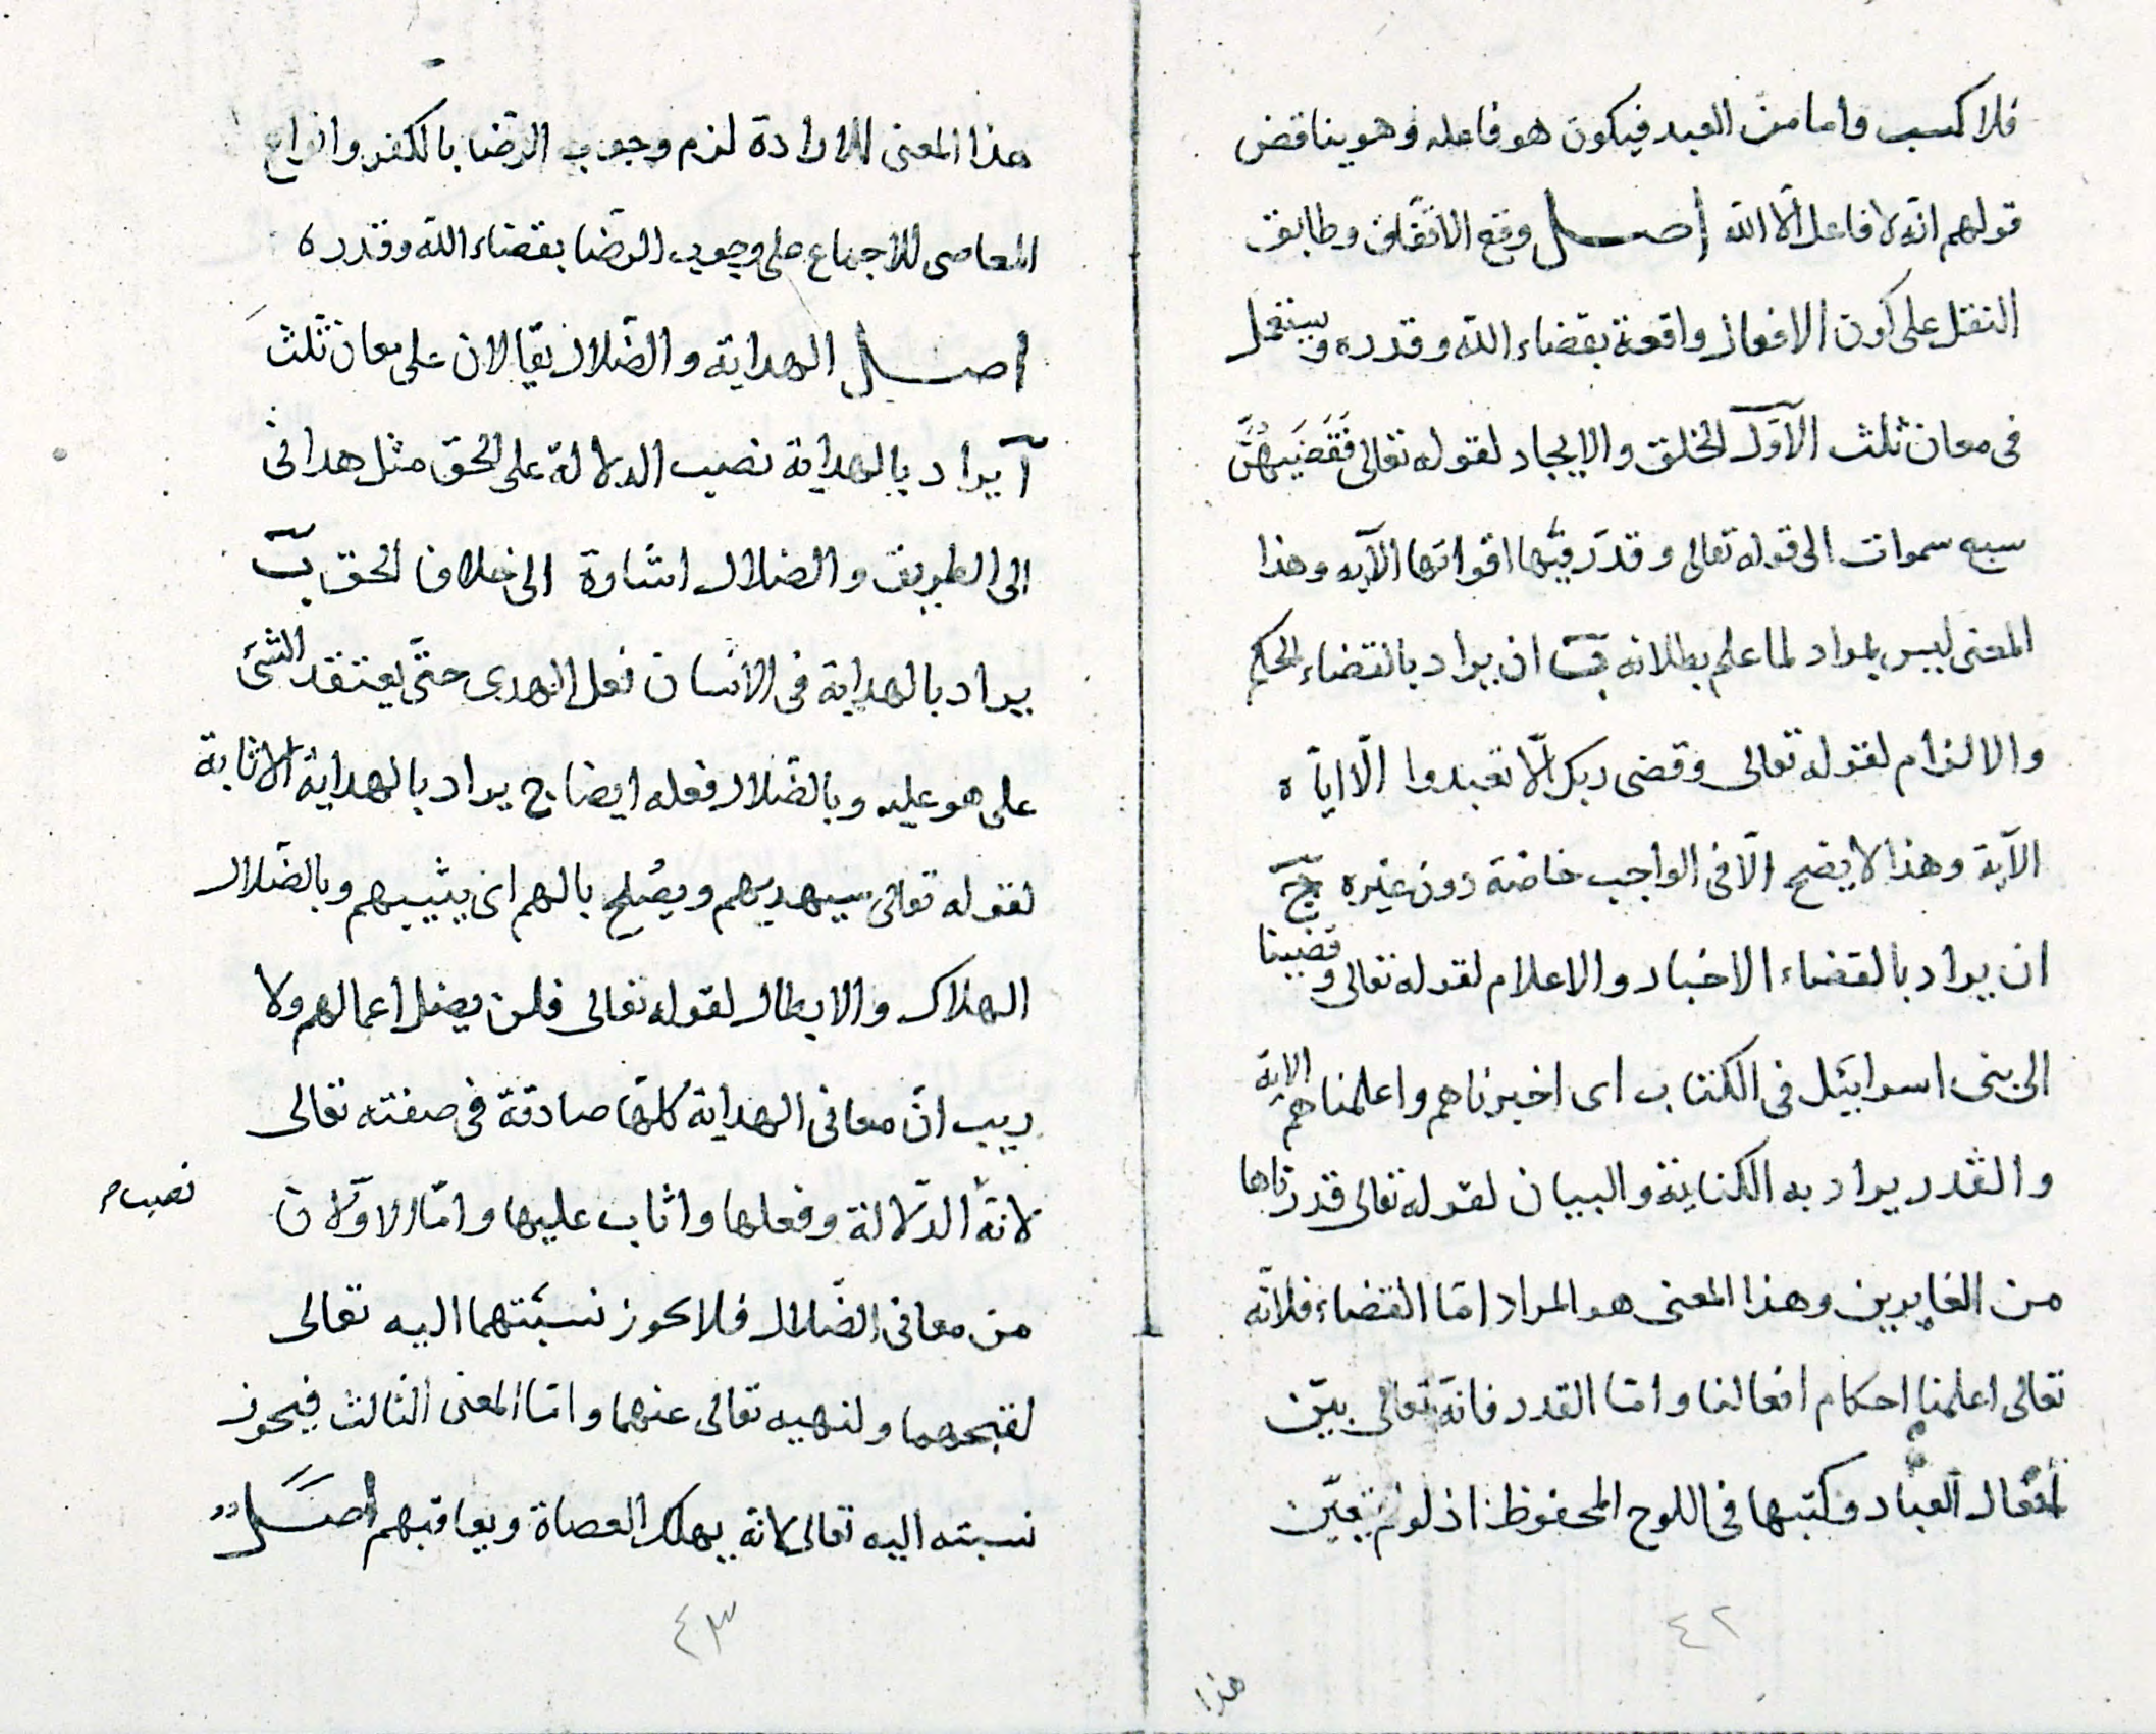 فلا كسب واما من العبد فيكون هو فاعله وهو يناقض
قولهم انّه لا فاعل الّا الله اصل وقع الاتّفاق وطابق
النقل على كون الافعال واقعة بقضاء الله وقدره ويستعمل
فى معان ثلث الاوّل الخلق والايجاد لقوله تعالى فَقَضَيهُنَّ
سبع سموات الى قوله تعالى وقدّر فيها اقواتها الآية وهذا
المعنى ليس بمراد لما علم بطلانه ب ان يراد بالقضاء الحكم
والالزام لقوله تعالى وقضى ربك الّا تعبدوا الّا ايّاه
الآية وهذا لا يصح الّا فى الواجب خاصّة دون غيره ج
ان يراد بالقضاء الاخبار والاعلام لقوله تعالى وقضينا
الى بنى اسرايئل فى الكتاب اى اخبرناهم واعلمناهم الاية
والقدر يراد به الكتابة والبيان لقوله تعالى قدرناها
من الغابرين وهذا المعنى هو المراد امّا القضاء فلانّه
تعالى اعلمنا احكام افعالنا وامّا القدر فانّه تعالى بيّن
أفعال العباد وكتبها فى اللوح المحفوظ اذ لو لم يتعيّن
٤٢
هذا
هذا المعنى للارادة لزم وجوب الرضا بالكفر وانواع
المعاصى للاجماع على وجوب الرضا بقضاء الله وقدره
اصل الهداية والضّلال يقالان على معان ثلث
آ يراد بالهداية نصب الدلالة على الحق مثل هدانى
الى الطريق والضلال اشارة الى خلاف الحق ب
يراد بالهداية فى الانسان فعل الهدى حتّى يعتقد الشئ
على هو عليه وبالضّلال فعله ايضا ج يراد بالهداية الاثابة
لقوله تعالى سيهديهم ويصُلح بالهم اى يثيبهم وبالضّلال
الهلاك والابطال لقوله تعالى فلن يضل اعمالهم ولا
ريب انّ معانى الهداية كلّها صادقة فى صفته تعالى
لانّه الدّلالة وفعلها واثاب عليها وامّا الاوّلان
نصب م
من معانى الضّلال فلا يجوز نسبتهما اليه تعالى
لقبحهما ولنهيه تعالى عنهما وامّا المعنى الثالث فيجوز
نسبته اليه تعالى لانه يهلك العصاة ويعاقبهم اصل
٤٣